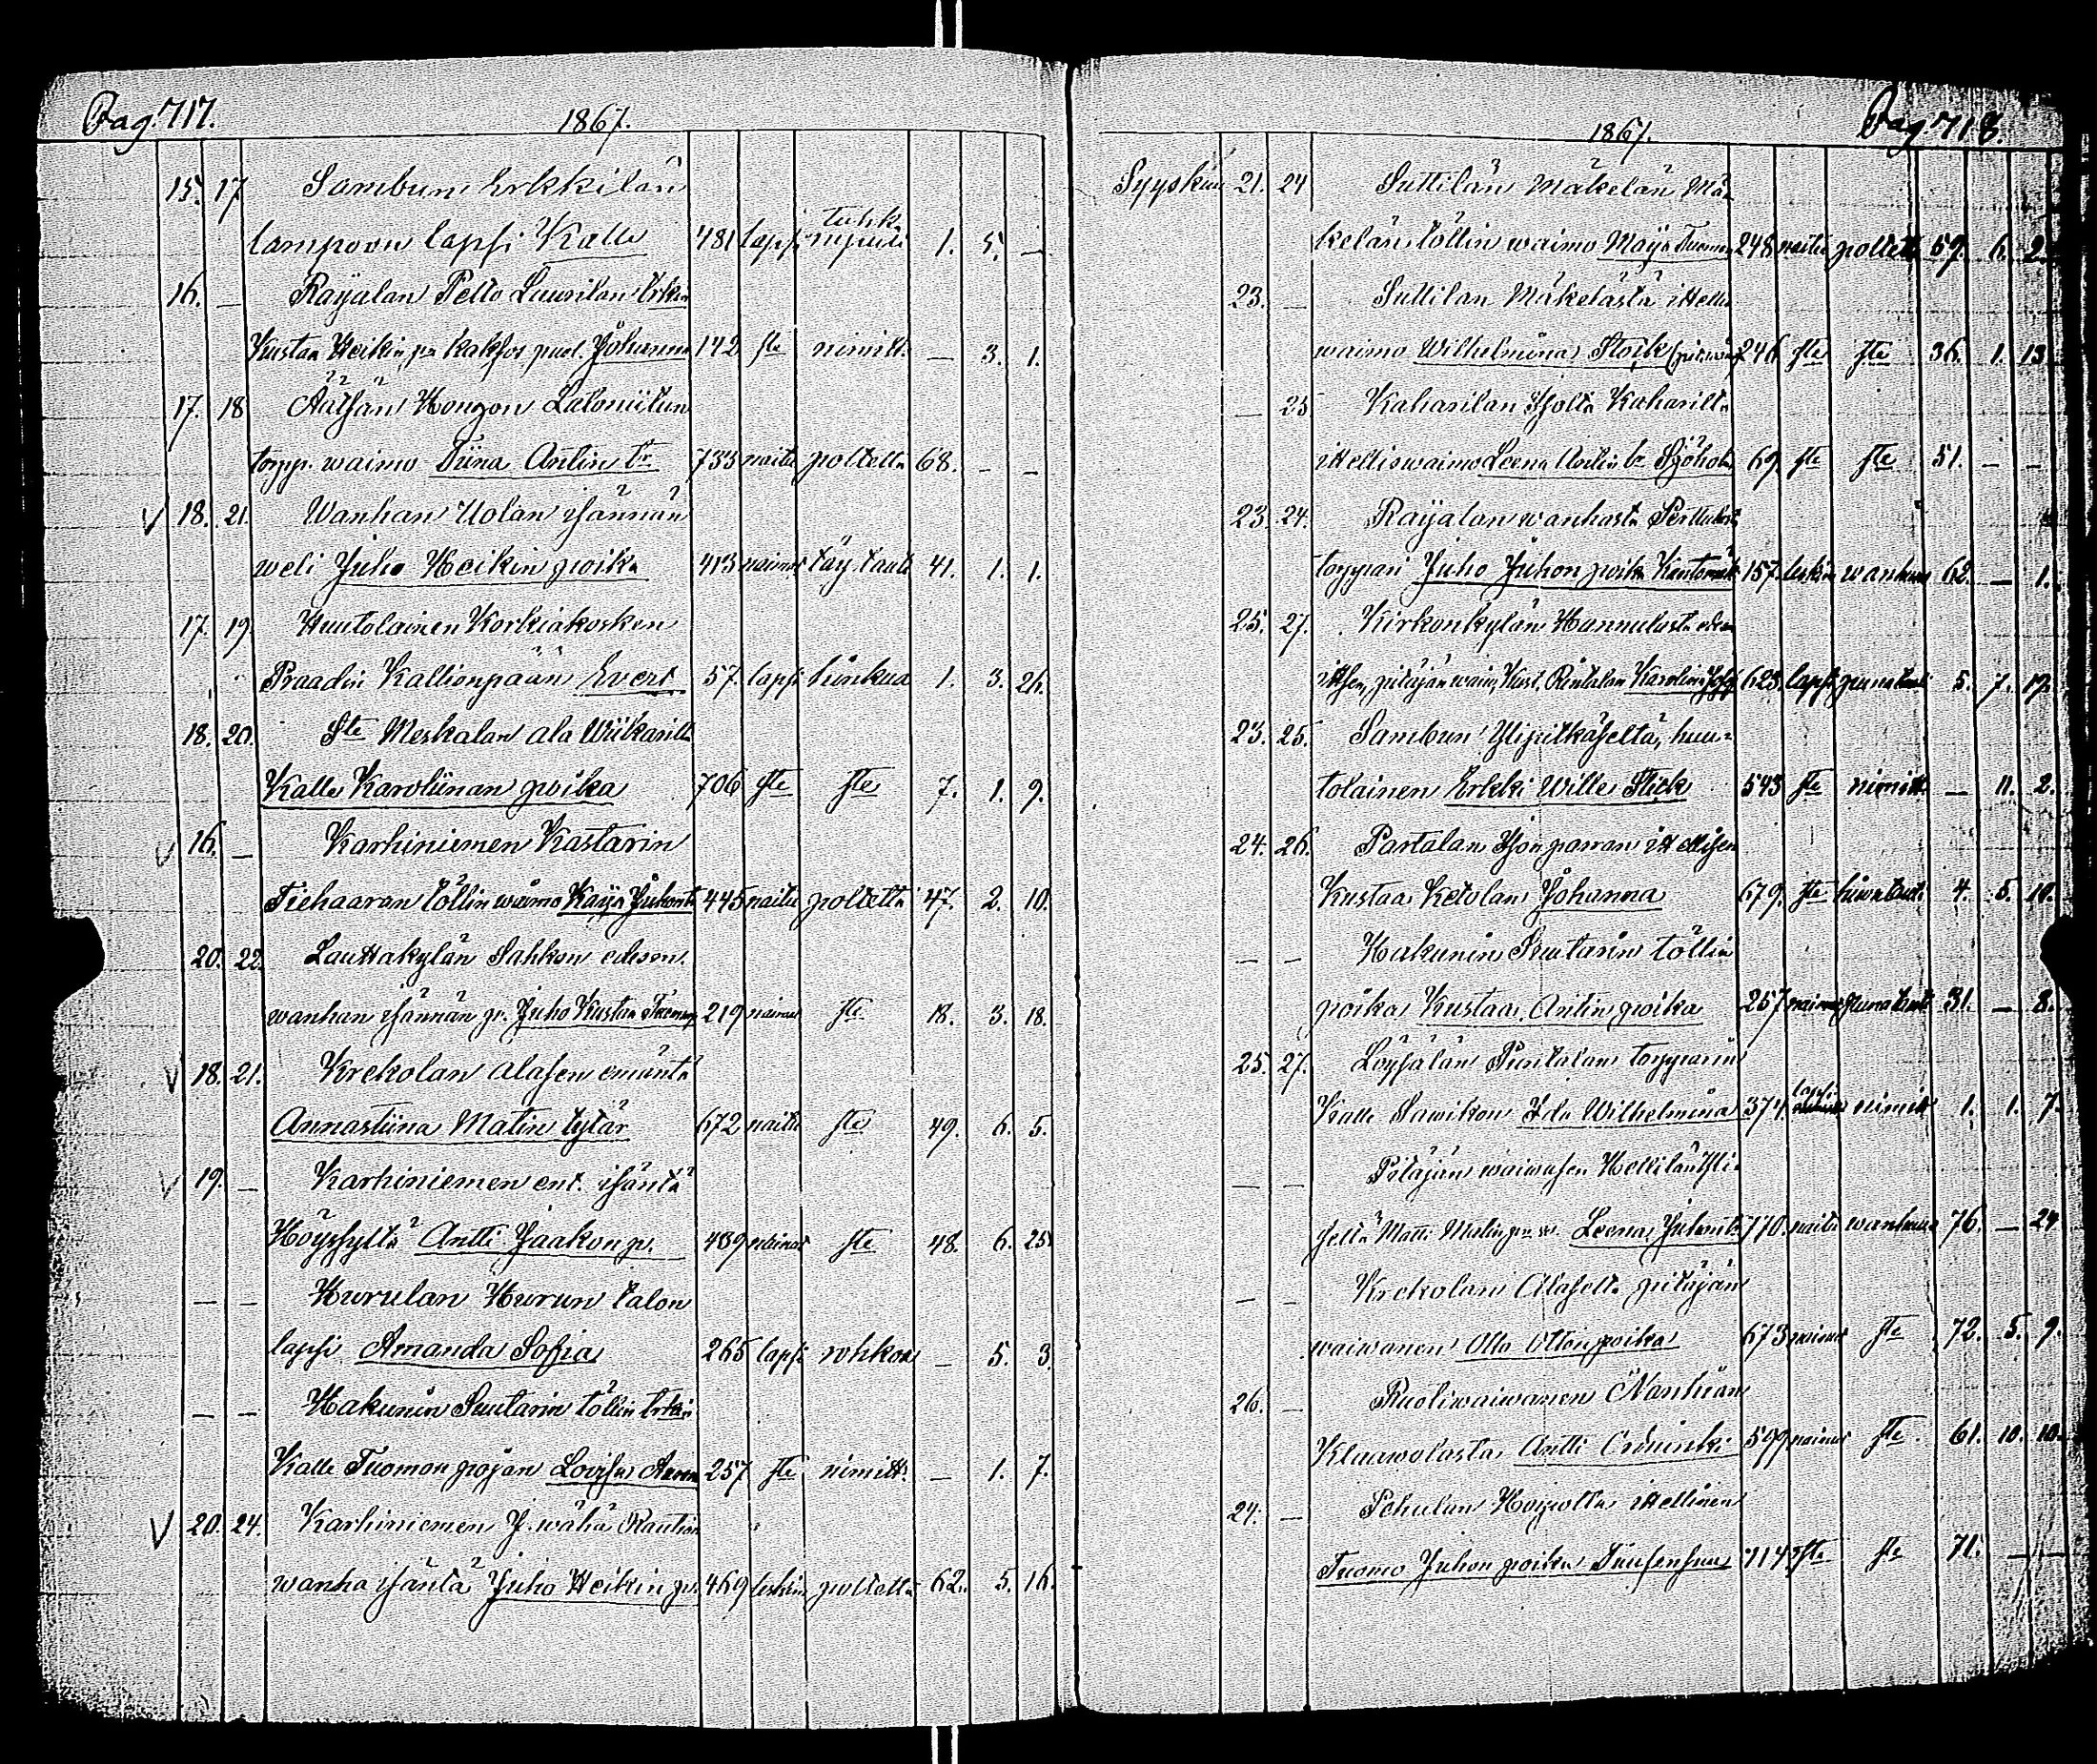 Pag. 717.
1867.
15. 17 Sambun Erkkilän
lampoou lapsi Kalle 481 lapsi tuhk. rupuli 1. 5. —
16. — Raijalan Pelto Laurilan Erkin
Kustaa Heikin pn kaksos puol. Johanna 142 ste nimitt. — 3. 1.
17. 18 Äätsän Hongon Latoniitun
torpp. waimo Tiina Antin tr 733 naitu poltetta 68. — —
V 18. 21. Wanhan Uolan isännän
weli Juho Heikin poika 413 nainut läy tauti 41. 1. 1.
17. 19. Huutolainen Korkiakosken
Praadin Kallionpään Evert 57. lapsi hinkua 1. 3. 26.
18. 20. Ste Meskalan ala Wiikarilta
Kalle Karoliinan poika 706 ste ste 7. 1. 9.
V 16. — Karhiniemen Kastarin
Tiehaaran töllin waimo Kaija Juhont. 445 naitu poltetta 47. 2. 10.
20. 22. Lauttakylän Sahkon edesm.
wanhan isännän p. Juho Kustaa 219 nainut ste 18. 3. 18.
V 18. 21. Krekolan alasen emäntä
Annastiina Matin tytär 672 naitu ste 49. 6. 5.
V 19. — Karhiniemen ent. isäntä
Höyssyltä Antti Jaakon p. 489 nainut ste 48. 6. 25
— — Hurulan Hurun talon
lapsi Amanda Sofia 265 lapsi rohkoa — 5. 3.
— — Hakunin Suutarin töllin Erkin
Kalle Tuomon pojan Lovisa 257 ste nimitt. — 1. 7.
V 20. 24. Karhiniemen J. wähä Raution
wanha isäntä Juho Heikin p. 469 leskin poltetta 62. 5. 16.
Pag 718.
1867.
Syyskuu 21. 24 Suttilan Mäkelän Mä-
kelän töllin waimo Maija Tuomon 248 naitu poltetta 59. 6. 2.
23. — Suttilan Mäkelästä ittellis
waimo Wilhelmiina Stoik 246 ste ste 36. 1. 13
— 25 Kaharilan Isolta Kaharilta
ittelliswaimo Leena Antin tr Sjöholm 69 ste ste 51. — —
23. 24. Raijalan wanhasta Perttulasta
torppari Juho Juhon poika 157. leskin wanhuus 62. — 1.
25. 27. Kirkonkylän Hannulasta
Kust. Rintalan Karoliina 623. lapsi punatauti 5. 7. 17.
23. 25. Sambun Ylipitkäseltä, huu-
tolainen Erkki Wille Stick 543 ste nimitt. — 11. 2.
24. 26. Partalan Isonparran ittellisen
Kustaa Ketolan Johanna 679. ste 4. 5. 10.
— — Hakunin Suutarin töllin
poika Kustaa Antin poika 257 nainut punatauti 31. — 8.
25. 27. Löysälän Puntalan torpparin
Kalle Sawikon Ida Wilhelmiina 374. lapsi nimitt 1. 1. 7.
— — Pitäjän waiwasen Hellilän Yli-
seltä Matti Leena Juhont. 770. naitu wanhuus 76. — 24
— — Krekolan Alaselta pitäjän
waiwanen Otto Otton poika 673 nainut ste 72. 5. 9.
26. — Ruotiwaiwanen Nanhian
Klaawolasta Antti 599 nainut ste 61. 10. 10.
24. — Pehulan ittellinen
Tuomo Juhon poika 714 ste ste 71. — —